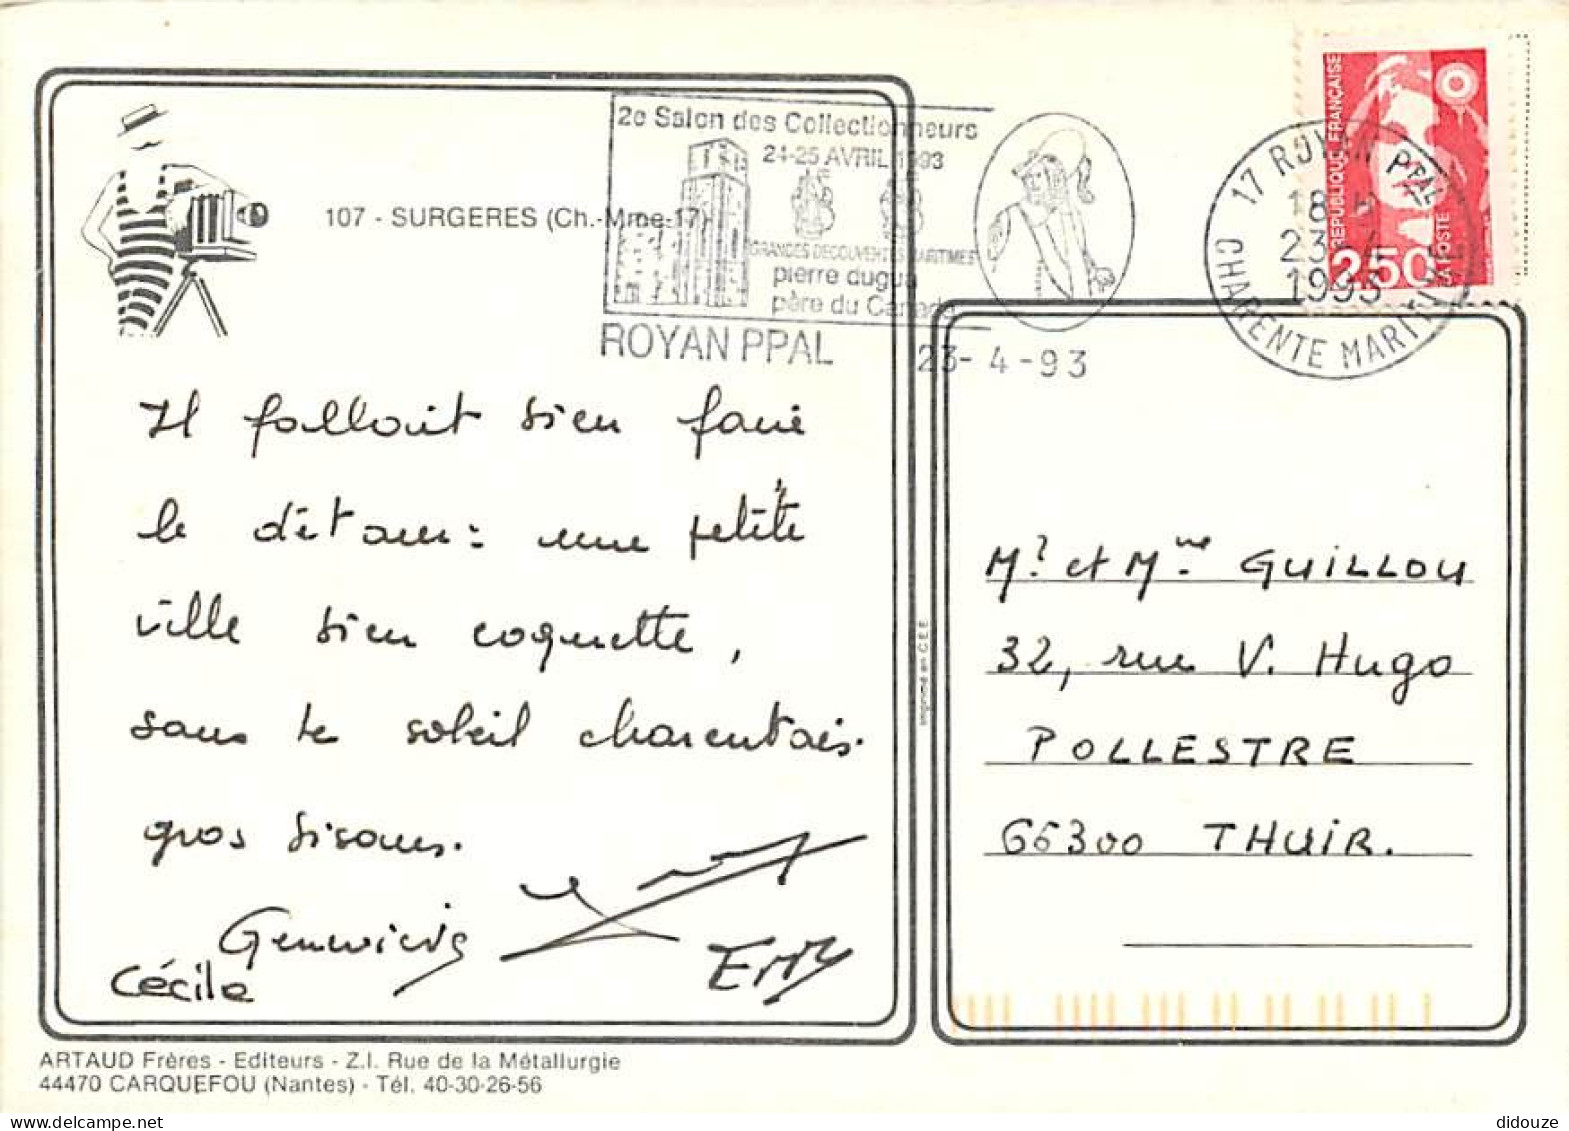 107 - SURGERES (Ch.-Mme-17)
2e Salon des Collectionneurs
24-25 AVRIL 1993
GRANDES DECOUVERTES MARITIMES
pierre dugua
père du Canada
ROYAN PPAL
23-4-93
17 ROYAN PPAL
18 H
23-4
1993
CHARENTE MARITIME
REPUBLIQUE FRANÇAISE
2,50 LA POSTE
Il fallait bien faire
le détour : une petite
ville bien coquette,
sous le soleil charentais.
gros bisous.
Geneviève
Cécile
M.r et Mme GUILLOU
32, rue V. Hugo
POLLESTRE
66300 THUIR.
Imprimé en C.E.E.
ARTAUD Frères - Editeurs - Z.I. Rue de la Métallurgie
44470 CARQUEFOU (Nantes) - Tél. 40-30-26-56
didouze